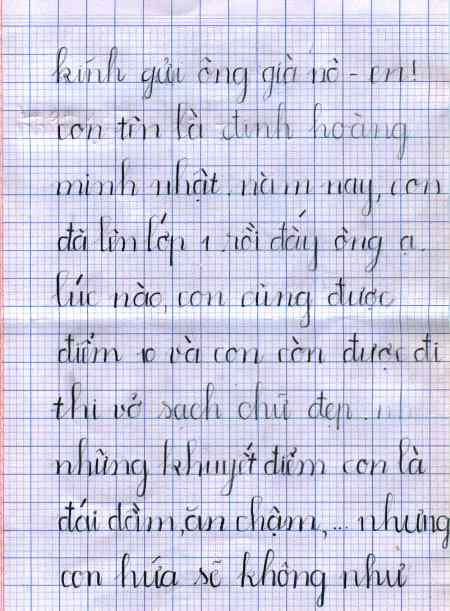 kính gửi ông già nô-en!
con tên là đinh hoàng
minh nhật. năm nay, con
đã lên lớp 1 rồi đấy ông ạ.
lúc nào, con cũng được
điểm 10 và con còn được đi
thi vở sạch chữ đẹp. nh
những khuyết điểm con là
đái dầm, ăn chậm,... nhưng
con hứa sẽ không như